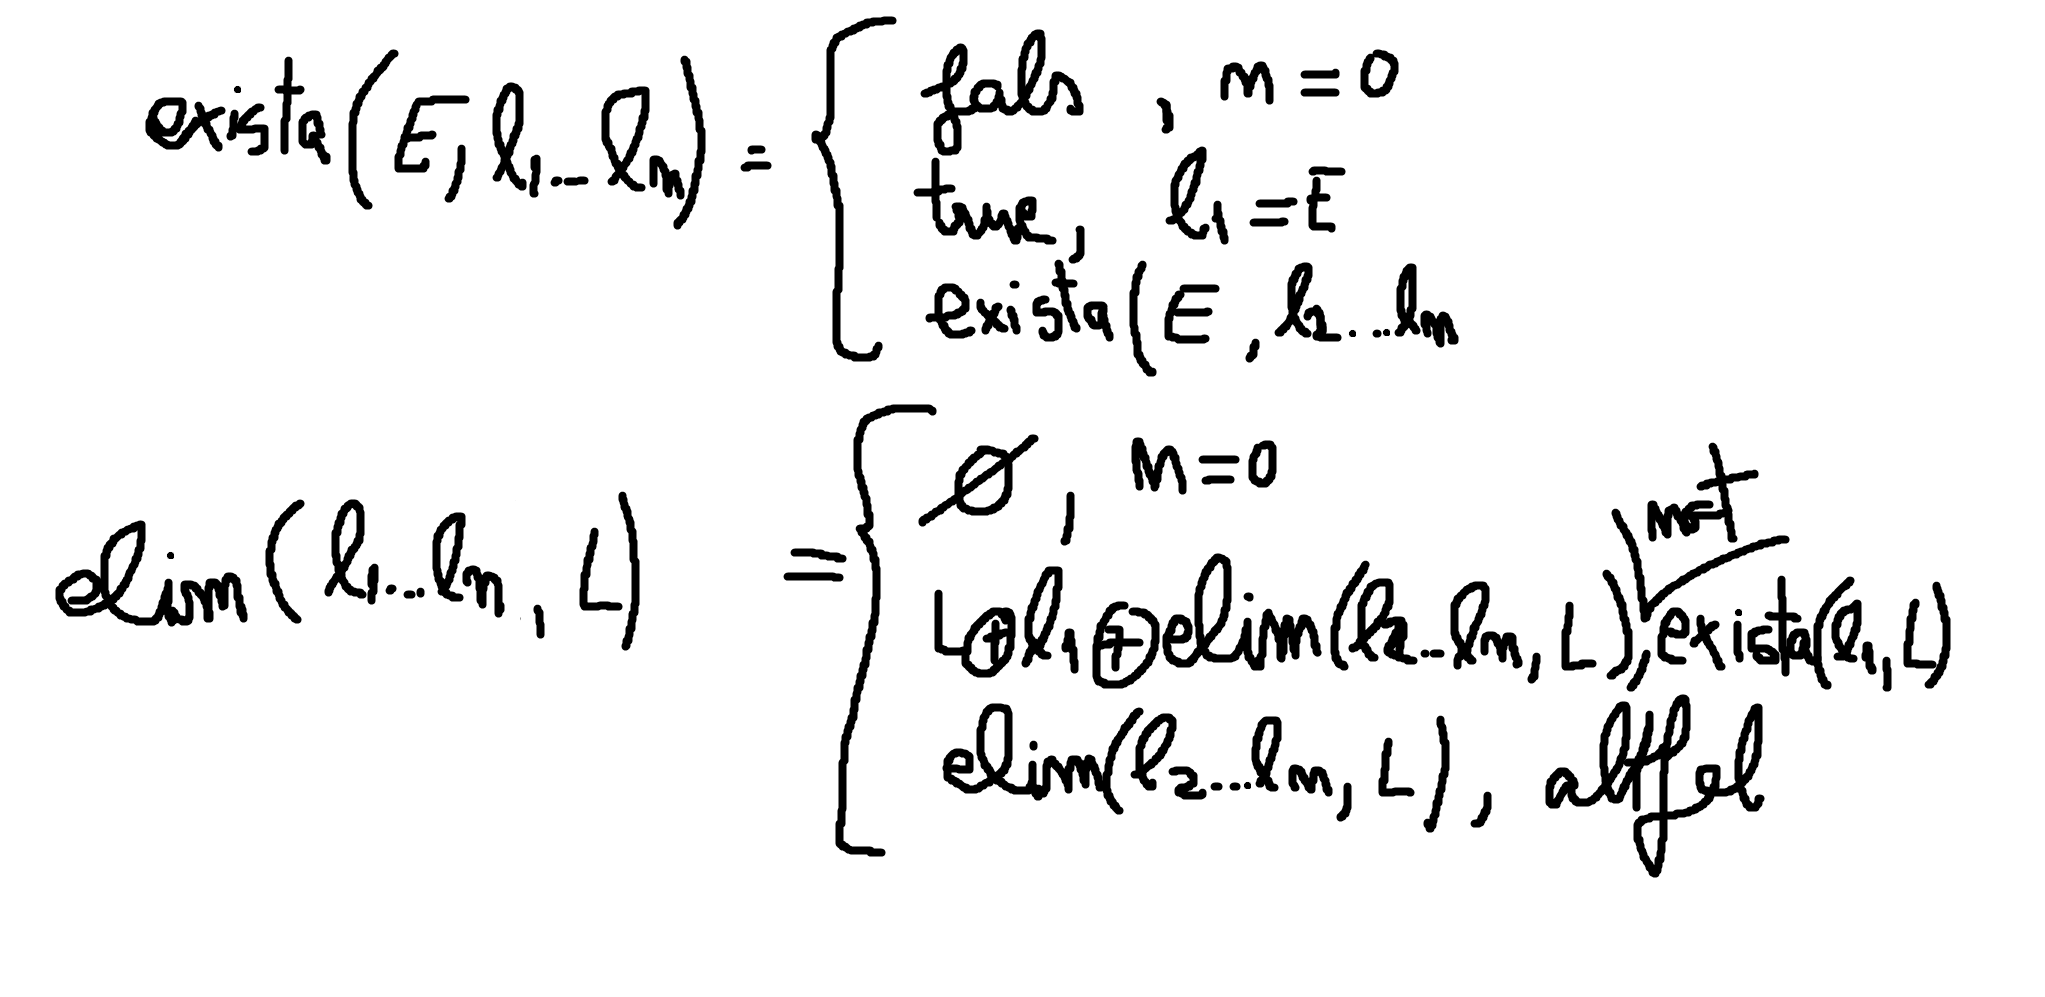 exista(E, l1...ln) = { fals , n=0
true, l1=E
exista(E, l2...ln
elim(l1...ln, L) = { ∅, n=0
L⊕l1⊕elim(l2...ln, L), exista(l1, L)
elim(l2...ln, L), altfel